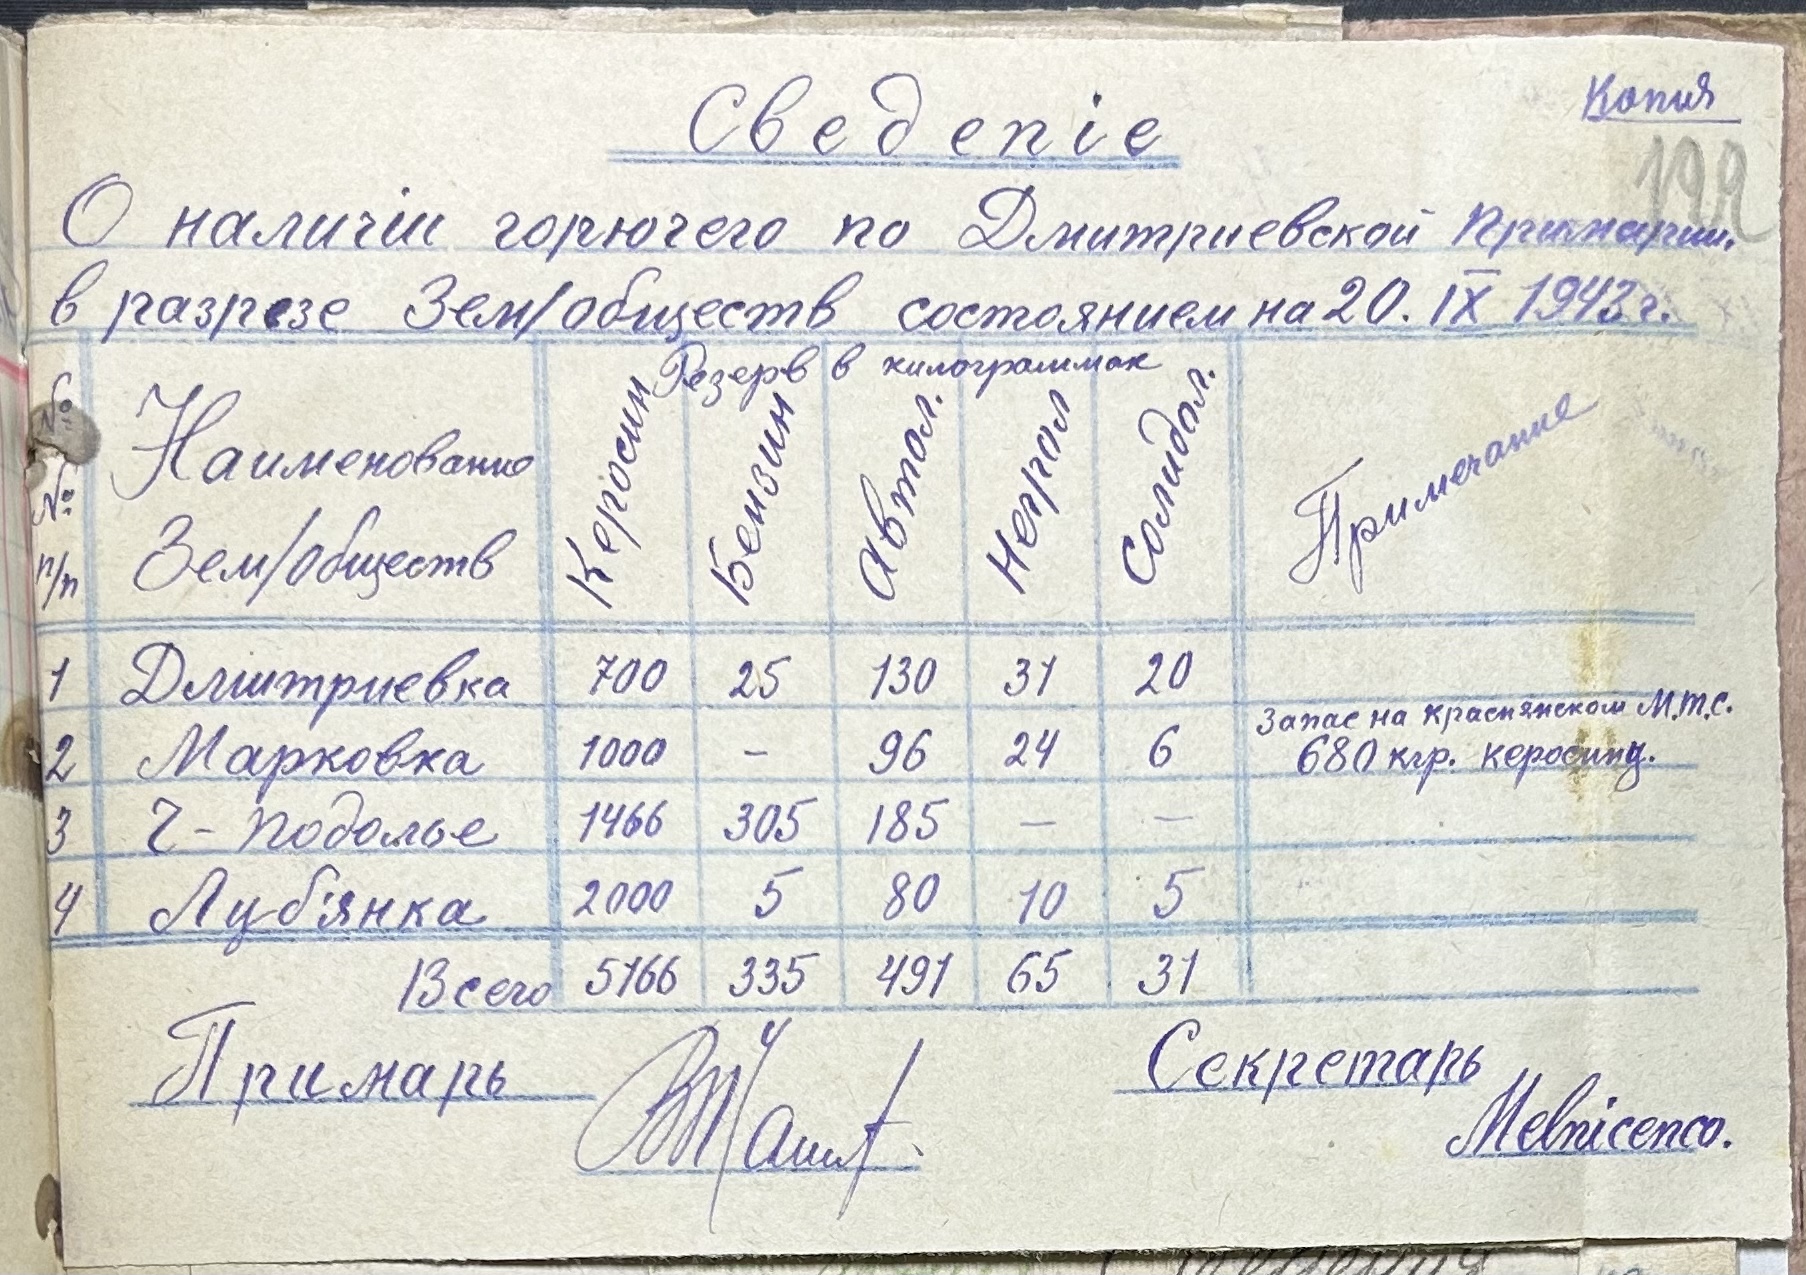 Копия
192
Сведеніе
О наличіи горючего по Дмитриевской Примарии.
в разрезе Зем/обществ состоянием на 20. IX 1943 г.
№ № п/п Наименование Зем/обществ Резерв в килограммах Примечание
Керосин Бензин Автол. Нигрол Солидол.
1 Дмитриевка 700 25 130 31 20
Запас на Краснянском М.Т.С.
2 Марковка 1000 – 96 24 6 680 кгр. керосину.
3 Ч-Подолье 1466 305 185 – –
4 Луб'янка 2000 5 80 10 5
Всего 5166 335 491 65 31
Примарь Секретарь
Melnicenco.